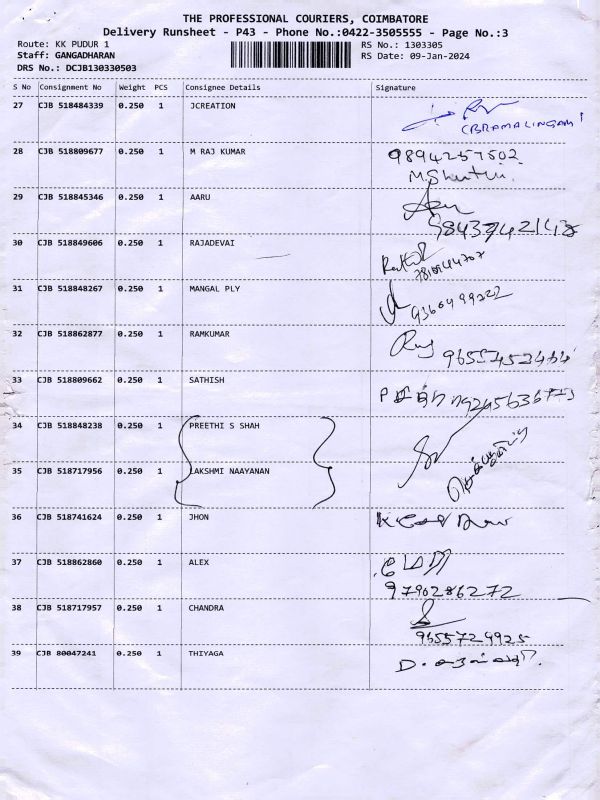 THE PROFESSIONAL COURIERS, COIMBATORE
Delivery Runsheet - P43 - Phone No.:0422-3505555 - Page No.:3
Route: KK PUDUR 1 RS No.: 1303305
Staff: GANGADHARAN RS Date: 09-Jan-2024
DRS No.: DCJB130330503
S No Consignment No Weight PCS Consignee Details Signature
27 CJB 518484339 0.250 1 JCREATION
(BRAMALINGAM)
28 CJB 518809677 0.250 1 M RAJ KUMAR 9894257502
29 CJB 518845346 0.250 1 AARU
30 CJB 518849606 0.250 1 RAJADEVAI
31 CJB 518848267 0.250 1 MANGAL PLY 9360499222
32 CJB 518862877 0.250 1 RAMKUMAR
33 CJB 518809662 0.250 1 SATHISH
34 CJB 518848238 0.250 1 PREETHI S SHAH
35 CJB 518717956 0.250 1 LAKSHMI NAAYANAN
36 CJB 518741624 0.250 1 JHON
37 CJB 518862860 0.250 1 ALEX
9790286272
38 CJB 518717957 0.250 1 CHANDRA
9655724925
39 CJB 80047241 0.250 1 THIYAGA